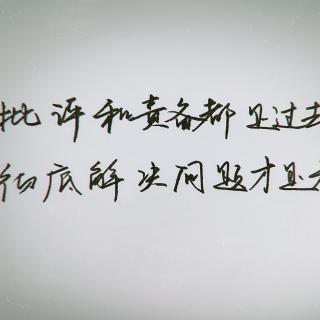 批评和责备都是过去
彻底解决问题才是